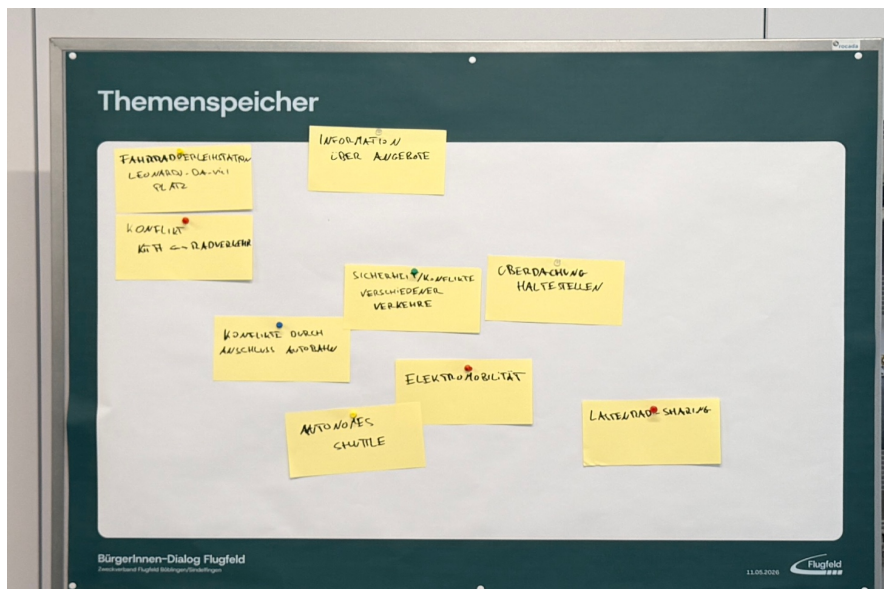 Themenspeicher
FAHRRADVERLEIHSTATION
LEONARDO-DA-VICI
PLATZ
INFORMATION
ÜBER ANGEBOTE
KONFLIKT
RADVERKEHR
SICHERHEIT/KONFLIKTE
VERSCHIEDENER
VERKEHRE
ÜBERDACHUNG
HALTESTELLEN
KONFLIKTE DURCH
ANSCHLUSS AUTOBAHN
ELEKTROMOBILITÄT
AUTONOMES
SHUTTLE
LASTENRAD-SHARING
BürgerInnen-Dialog Flugfeld
Zweckverband Flugfeld Böblingen/Sindelfingen
11.05.2026
Flugfeld